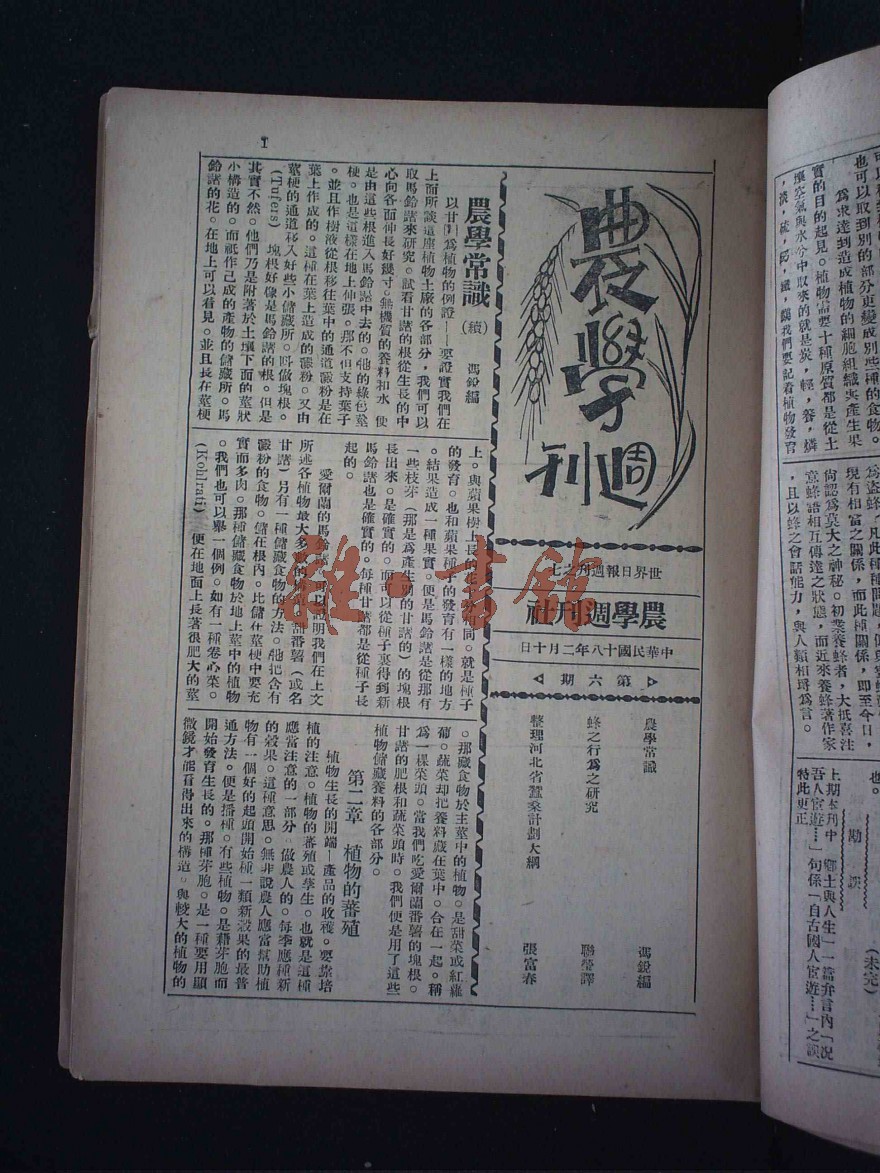 農學週刊
世界日報週刊之七
農學週刊社
中華民國十八年二月十日
第六期
農學常識 馮銳編
蜂之行為之研究 聯瑩譯
整理河北省蠶桑計劃大綱 張富春
農學常識(續) 馮銳編
以甘藷為植物的例證——要證實我們在
上面所談這座植物工廠的各部分,我們可以
取馬鈴藷來研究。試看甘藷的根從生長的中
心向各面伸長好幾寸。無機質的養料和水 便
是由這些根進入馬鈴藷中去的。他的綠色莖
梗。也是這樣在地上伸張。那不但支持葉子
。並且作樹液從根移往葉中的通道澱粉是在
葉上作成的。這種在葉上造成的澱粉。又由
莖梗的通道移入好些小儲藏所。叫做塊根。
(Tufers) 塊根好像是馬鈴藷的根。但是
其實不然。他們乃是附著於土壤下面的莖狀
小構造的。而祇作已成的產物的儲藏所。馬
鈴藷的花。在地上可以看見。並且長在莖梗
上。與蘋果樹上長的花 分相同。就是種子
的發育。也和蘋果種子的發育有一樣的地方
。結果造成一種果實。便是馬鈴藷是從那有
一些枝芽(那是為產生別的甘藷的)的塊根
長出來。是確實的。而可以從種子裏得到新
馬鈴藷也是確實的。每種甘藷都是從種子長
起的。
愛爾蘭的馬鈴藷。可以證明我們在上文
所述各植物最大多數的構造。甜番薯(或名
甘藷)另有一種儲藏食物的方法。他把含有
澱粉的食物。儲在根內。比儲在莖梗中要充
實而多肉。那種儲藏食物於地上莖中的植物
。我們也可以舉一個例。如有一種卷心菜。
(Kohlrati) 便在地面上長著很肥大的莖
。那藏食物於主莖中的植物。是甜菜或紅蘿
葡。蔬菜却把養料藏在葉中。合在一起。稱
為一樣菜頭。當我們吃愛爾蘭番薯的塊根。
甘藷的肥根和蔬菜頭時。我們便是用了這些
植物儲藏養料的各部分。
第二章 植物的蕃殖
植物生長的開端—產品的收穫。要靠培
植的注意。植物的蕃殖或孳生。也就是這種
應當注意的一部分 做農人的。每季應種新
的穀果。這種意思。無非說農人應當幫助植
物有一個好的起頭開始種一類新穀果的最普
通方法。便是播種。有些植物。是藉芽胞而
開始發育生長的。那種芽胞。是一種要用顯
微鏡才能看得出來的構造。與較大的植物的
1
也可以取到別的部分更變成別些種的食物。
為求達到造成植物的細胞組織與產生果
實的目的起見。植物需要十種原質都是從土
壤空氣與水分中取來的就是炭,輕,養,燐
現有相當之關係,而此種關係,即至今日,
尚認為莫大之神秘。初業養蜂者,大抵喜注
意蜂語相互傳達之狀態,而近來養蜂著作家
,且以蜂之會話能力,與人類相將為言。
也。 (未完)
勘誤
上期本刊中「鄉土與人生」一篇弁言內「況
吾人宦遊……」句係「自古國人宦遊……」之誤
特此更正
雜·書館